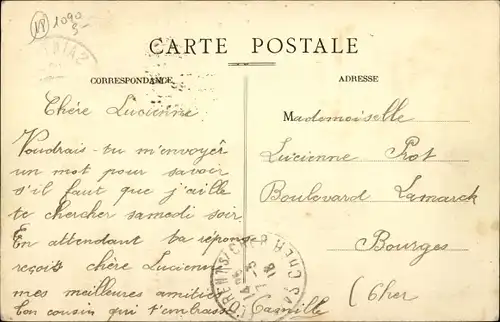 1090
5-
CARTE POSTALE
CORRESPONDANCE
ADRESSE
Chère Lucienne
Voudrais-tu m'envoyer
un mot pour savoir
s'il faut que j'aille
te chercher samedi soir
En attendant ta réponse
reçois chère Lucienne
mes meilleures amitiés
Ton cousin qui t'embrasse Camille
Mademoiselle
Lucienne Prot
Boulevard Lamarck
Bourges
(Cher